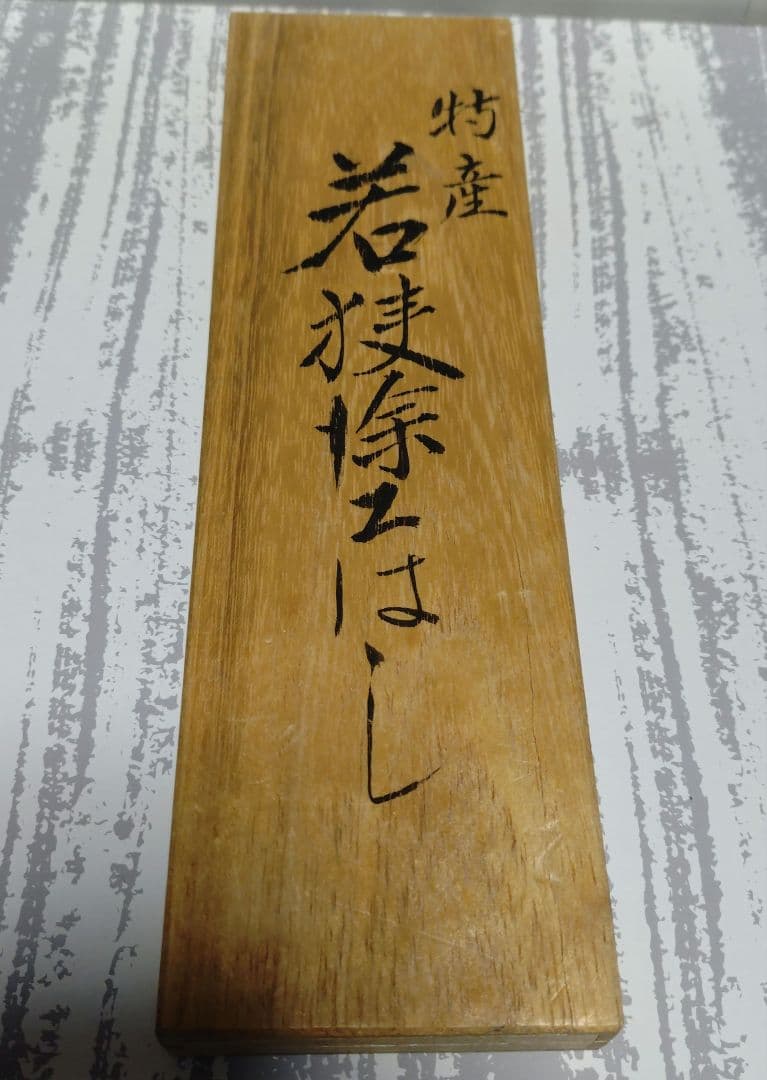 特産
若狭塗はし